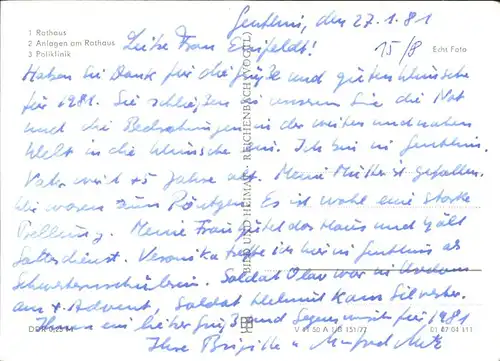 Genthin, den 27.1.81
1 Rathaus
2 Anlagen am Rathaus
3 Poliklinik
Liebe Frau
15/8
Echt Foto
Haben Sie Dank für die Grüße und guten Wünsche
für 1981. Sie schließen in unserem Sie die Not
und die Bedrohungen in der weiten und nahen
Welt in die Wünsche ein. Ich bin in Genthin.
Vater wird 75 Jahre alt. Meine Mutter ist gefallen.
Wir waren zum Röntgen. Es ist wohl eine starke
Prellung. Meine Frau hütet das Haus und hält
Gottesdienst. Veronika treffe ich hier in Genthin als
Schwesternschülerin. Soldat Olav war in
am 4. Advent, Soldat Helmut kam Silvester.
Ihnen ein lieber Gruß und Segenswunsch für 1981
Ihre Brigitte u. Manfred
BILD UND HEIMAT REICHENBACH (VOGTL)
DDR 0,25 M
V 11 50 A 1/B 151/77
01 07 04 111